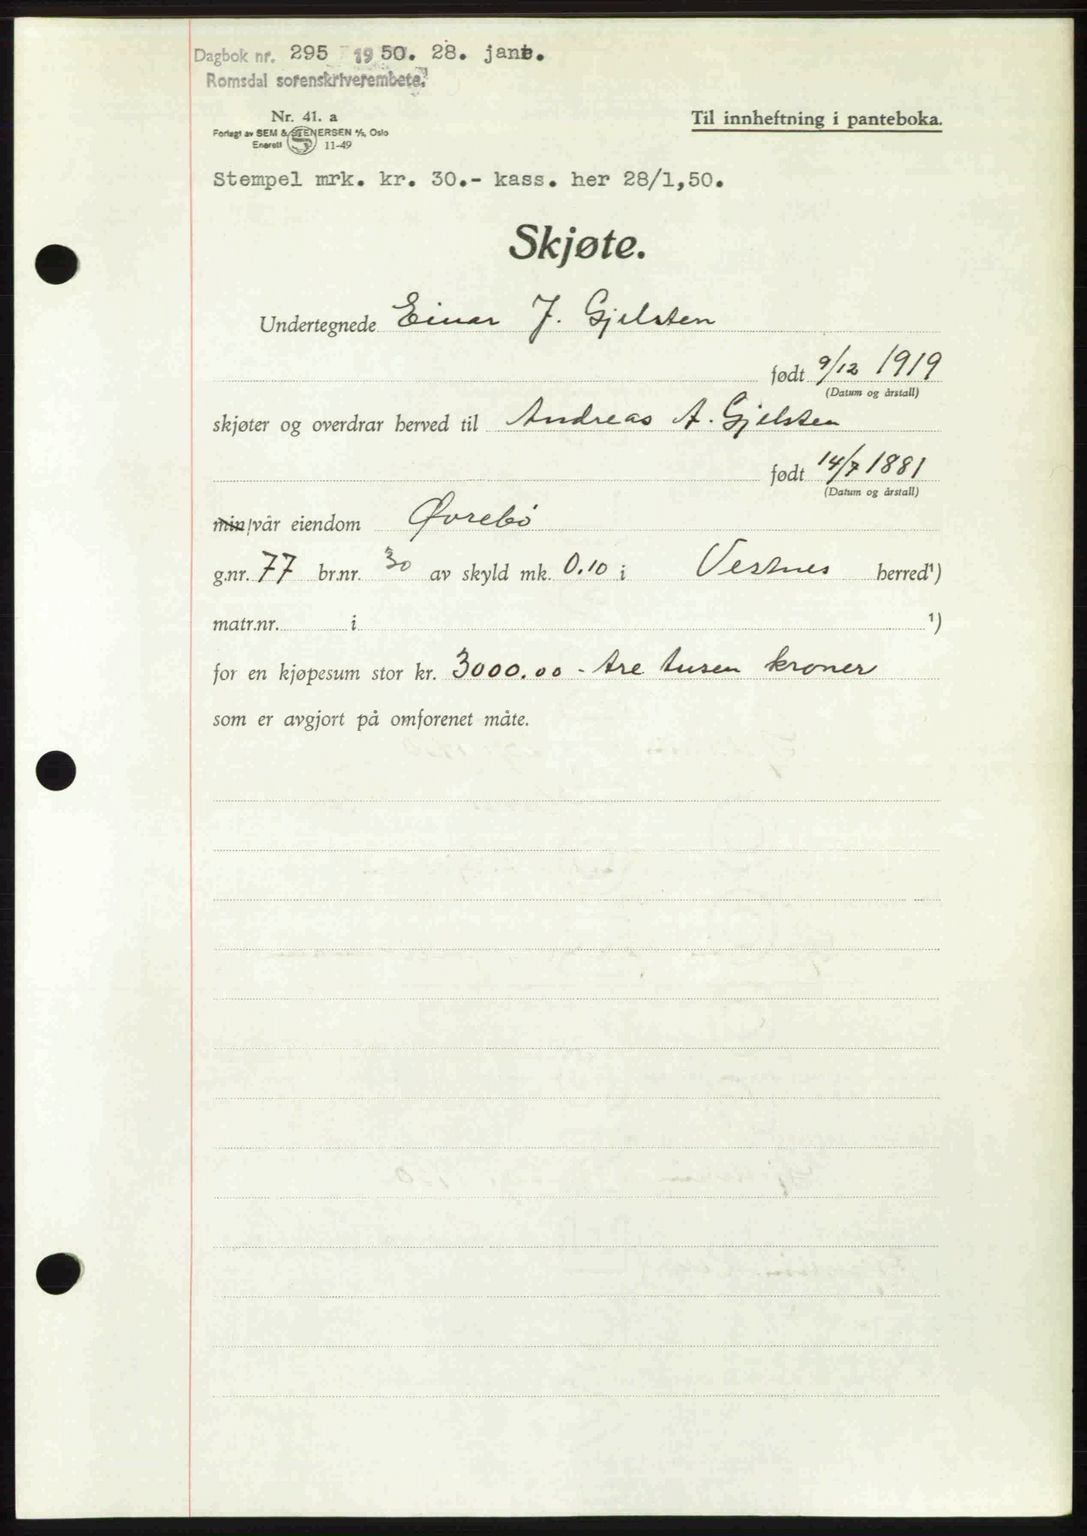 Dagbok nr. 295 1950. 28. jan.
Romsdal sorenskriverembete.
Nr. 41. a
Forlagt av SEM & STENERSEN A/S, Oslo
Enerett S 11-49
Til innheftning i panteboka.
Stempel mrk. kr. 30.- kass. her 28/1,50.
Skjøte.
Undertegnede Einar J. Gjelsten
født 9/12 1919
(Datum og årstall)
skjøter og overdrar herved til Andreas A. Gjelsten
født 14/7 1881
(Datum og årstall)
min/vår eiendom Øvrebø
g.nr. 77 br.nr. 30 av skyld mk. 0.10 i Vestnes herred¹)
matr.nr. i ¹)
for en kjøpesum stor kr. 3000.00 - tre tusen kroner
som er avgjort på omforenet måte.